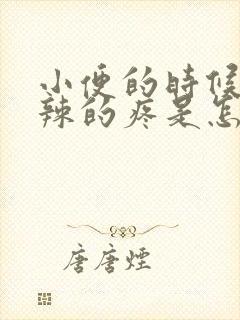 小便的时候
辣的疼是怎
唐唐煙